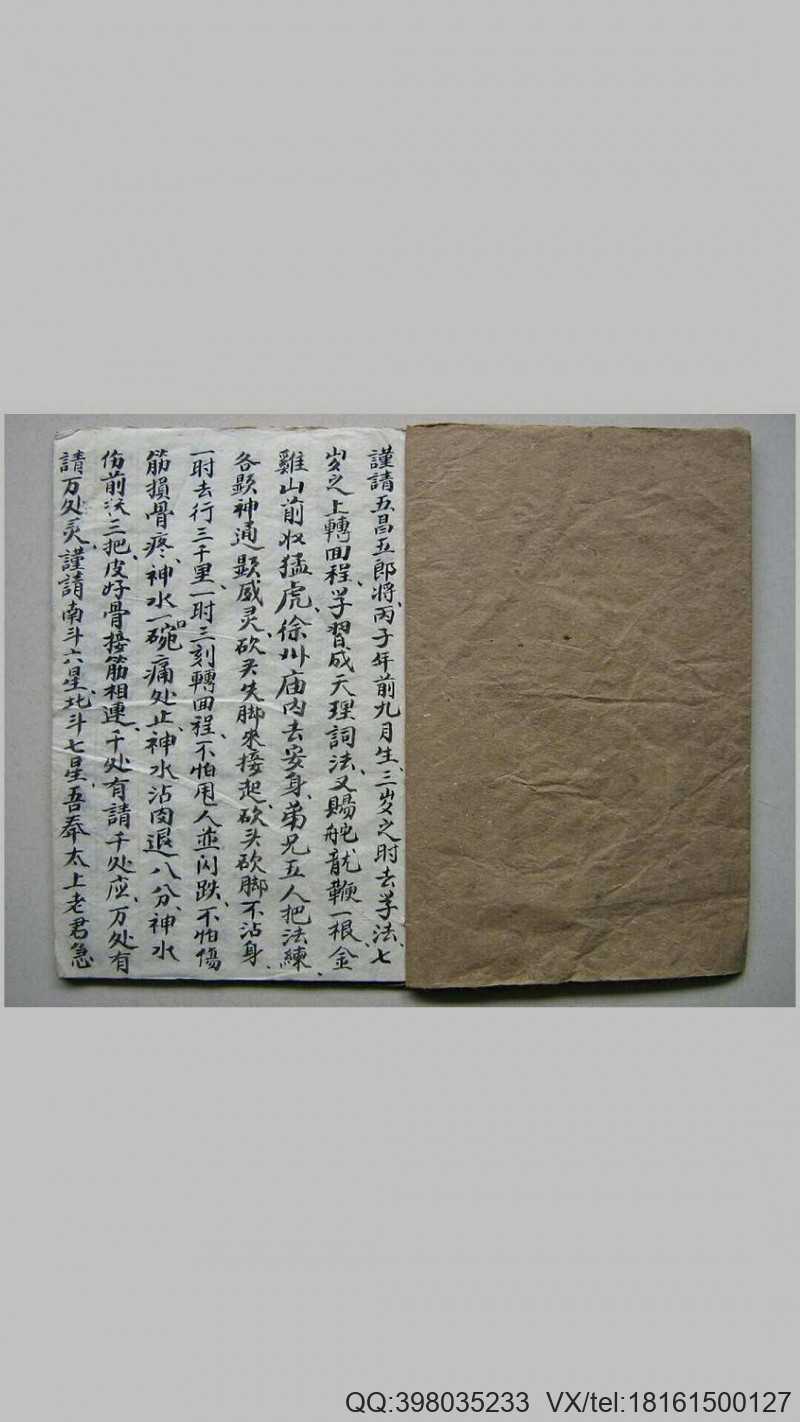 謹請五昌五郎將、丙子年前九月生、三岁之时去学法、七
岁之上轉回程、学習成天理詞法、又賜蛇龍鞭一根、金
雞山前收猛虎、徐州庙内去安身、弟兄五人把法練、
各顕神通顕威灵、砍头失脚來接起、砍头砍脚不沾身、
一时去行三千里、一时三刻轉回程、不怕甩人並闪跌、不怕傷
筋損骨疼、神水一碗痛处止、神水沾肉退八分、神水
伤前三把、皮好骨接筋相連、千处有請千处应、万处有
請万处灵、謹請南斗六星、北斗七星、吾奉太上老君急
QQ:398035233 VX/tel:18161500127